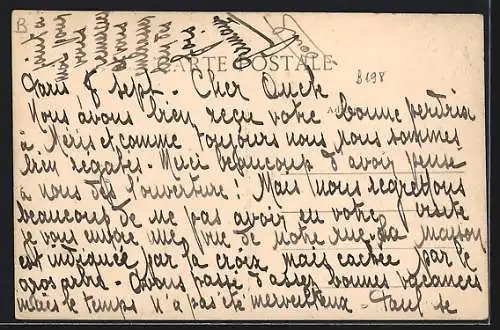 B
CARTE POSTALE
B198
Paris 8 sept. Cher Oncle
Nous avons bien reçu votre bonne perdrix
à Méris et comme toujours nous nous sommes
bien régalés. Merci beaucoup d'avoir pensé
à nous dès l'ouverture! Mais nous regrettons
beaucoup de ne pas avoir eu votre visite
je vous envoie une vue de notre rue. La maison
est indiquée par la croix mais cachée par le
gros arbre. Avons passé d'assez bonnes vacances
mais le temps n'a pas été merveilleux.